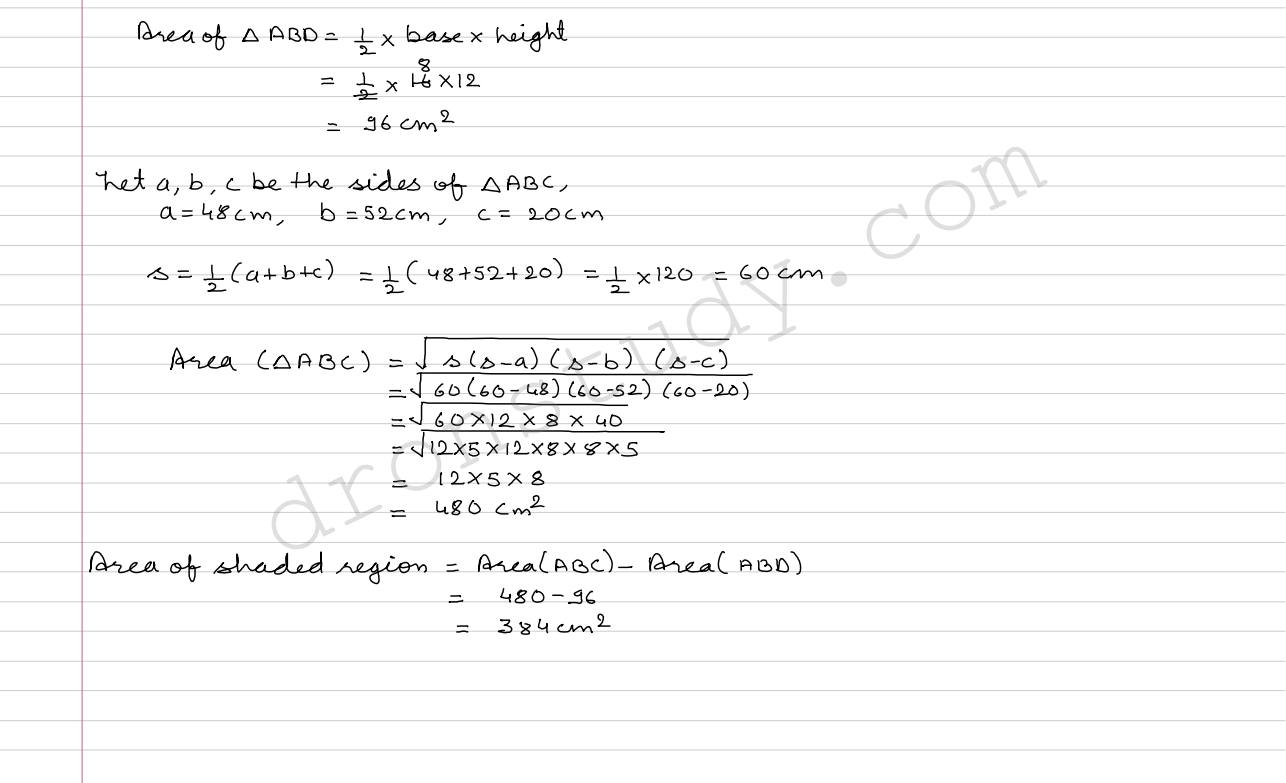 Area of △ ABD = 1/2 × base × height
= 1/2 × 16 8 × 12
= 96 cm²
Let a, b, c be the sides of △ABC,
a = 48cm, b = 52cm, c = 20cm
s = 1/2 (a+b+c) = 1/2 (48+52+20) = 1/2 × 120 = 60 cm
Area (△ABC) = √s(s-a) (s-b) (s-c)
= √60(60-48) (60-52) (60-20)
= √60×12 × 8 × 40
= √12×5×12×8×8×5
= 12×5×8
= 480 cm²
Area of shaded region = Area(ABC) - Area(ABD)
= 480-96
= 384cm²
dronstudy.com